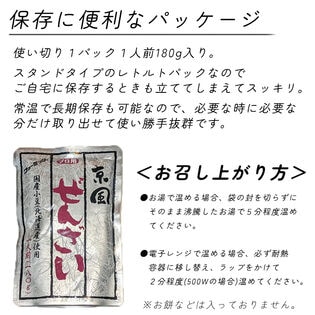 保存に便利なパッケージ
使い切り１パック１人前180g入り。
スタンドタイプのレトルトパックなので
ご自宅に保存するときも立ててしまえてスッキリ。
常温で長期保存も可能なので、必要な時に必要な
分だけ取り出せて使い勝手抜群です。
プロ用
京風
ぜんざい
国産小豆(北海道産)使用
一人前(一八〇g)
＜お召し上がり方＞
●お湯で温める場合、袋の封を切らずに
そのまま沸騰したお湯で５分程度温め
てください。
●電子レンジで温める場合、必ず耐熱
容器に移し替え、ラップをかけて
２分程度(500Wの場合)温めてください。
※お餅などは入っておりません。